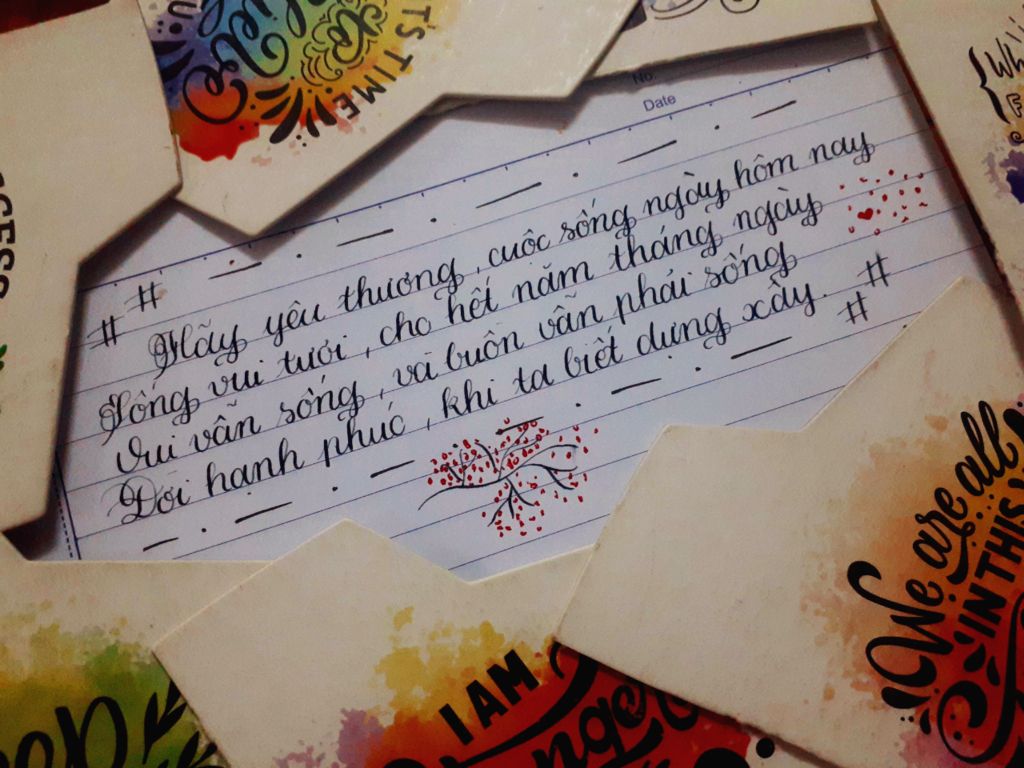 No.
Date
# #
Hãy yêu thương, cuộc sống ngày hôm nay
Sống vui tươi, cho hết năm tháng ngày
Vui vẫn sống, và buồn vẫn phải sống
Đời hạnh phúc, khi ta biết dựng xây. # #
IT'S TIME
I AM
We are all
IN THIS